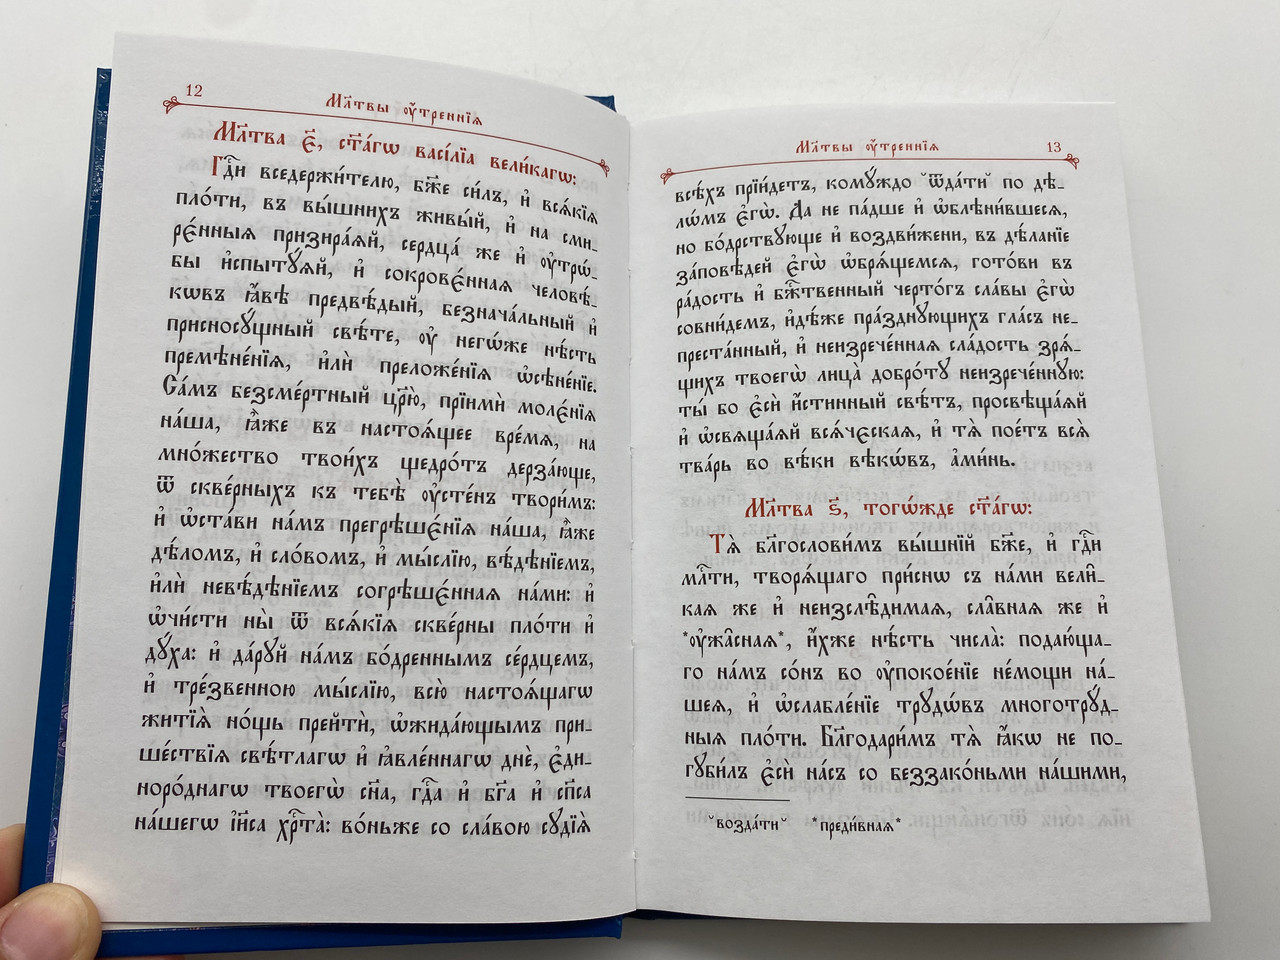 12
Мл҃твы ᲂу҆́треннїѧ
Мл҃тва є҃, ст҃а́гѡ васі́лїа вели́кагѡ:
Гдⷭ҇и вседержи́телю, бж҃е си́лъ, и҆ всѧ́кїѧ
пло́ти, въ вы́шнихъ живы́й, и҆ на сми-
ре́нныѧ призира́ѧй, сердца́ же и҆ ᲂу҆трѡ́-
бы и҆спыту́ѧй, и҆ сокрове́ннаѧ человѣ́-
кѡвъ ꙗ҆́вѣ предвѣ́дый, безнача́льный и҆
присносу́щный свѣ́те, ᲂу҆ негѡ́же нѣ́сть
премѣне́нїѧ, и҆лѝ преложе́нїѧ ѡ҆сѣне́нїе.
Са́мъ безсме́ртный цр҃ю̀, прїимѝ моле́нїѧ
на́ша, ꙗ҆̀же въ настоѧ́щее вре́мѧ, на
мно́жество твои́хъ щедро́тъ дерза́юще,
ѿ скве́рныхъ къ тебѣ̀ ᲂу҆сте́нъ твори́мъ:
и҆ ѡ҆ста́ви на́мъ прегрѣшє́нїѧ на́ша, ꙗ҆̀же
дѣ́ломъ, и҆ сло́вомъ, и҆ мы́слїю, вѣ́дѣнїемъ,
и҆лѝ невѣ́дѣнїемъ согрѣшє́ннаѧ на́ми: и҆
ѡ҆чи́сти ны̀ ѿ всѧ́кїѧ скве́рны пло́ти и҆
дꙋ́ха: и҆ да́рꙋй на́мъ бо́дреннымъ се́рдцемъ,
и҆ тре́звенною мы́слїю, всю̀ настоѧ́щагѡ
житїѧ̀ но́щь прейтѝ, ѡ҆жида́ющымъ при-
ше́ствїѧ свѣ́тлагѡ и҆ ꙗ҆вле́ннагѡ днѐ, є҆ди-
норо́днагѡ твоегѡ̀ сн҃а, гдⷭ҇а и҆ бг҃а и҆ сп҃са
на́шегѡ і҆и҃са хрⷭ҇та̀: во́ньже со сла́вою сꙋдїѧ̀
Мл҃твы ᲂу҆́треннїѧ
13
всѣ́хъ прїи́детъ, комꙋ́ждо ˇѿда́тиˇ по дѣ-
лѡ́мъ є҆гѡ̀. Да не па́дше и҆ ѡ҆блѣни́вшесѧ,
но бо́дрствꙋюще и҆ воздви́жени, въ дѣ́ланїе
за́повѣдей є҆гѡ̀ ѡ҆брѧ́щемсѧ, гото́ви въ
ра́дость и҆ бжⷭ҇твенный черто́гъ сла́вы є҆гѡ̀
совни́демъ, и҆дѣ́же пра́зднꙋющихъ гла́съ не-
преста́нный, и҆ неизрече́ннаѧ сла́дость зрѧ́-
щихъ твоегѡ̀ лица̀ добро́тꙋ неизрече́ннꙋю:
ты́ бо є҆сѝ и҆́стинный свѣ́тъ, просвѣща́ѧй
и҆ ѡ҆свѧща́ѧй всѧ́ческаѧ, и҆ тѧ̀ пое́тъ всѧ̀
тва́рь во вѣ́ки вѣкѡ́въ, а҆ми́нь.
Мл҃тва ѕ҃, тогѡ́жде ст҃а́гѡ:
Тѧ̀ бл҃гослови́мъ вы́шнїй бж҃е, и҆ гдⷭ҇и
мл҃ти, творѧ́щаго при́снѡ съ на́ми вели̑-
каѧ же и҆ неизслѣ̑димаѧ, сла̑внаѧ же и҆
*ᲂу҆жа̑снаѧ*, и҆̀хже нѣ́сть числа̀: подаю́ща-
го на́мъ со́нъ во ᲂу҆покое́нїе не́мощи на́-
шеѧ, и҆ ѡ҆слабле́нїе трꙋдѡ́въ многотрꙋ́д-
ныѧ пло́ти. Бл҃годари́мъ тѧ̀ ꙗ҆́кѡ не по-
гꙋби́лъ є҆сѝ на́съ со беззако́ньми на́шими,
ˇвозда́тиˇ *преди̑внаѧ*